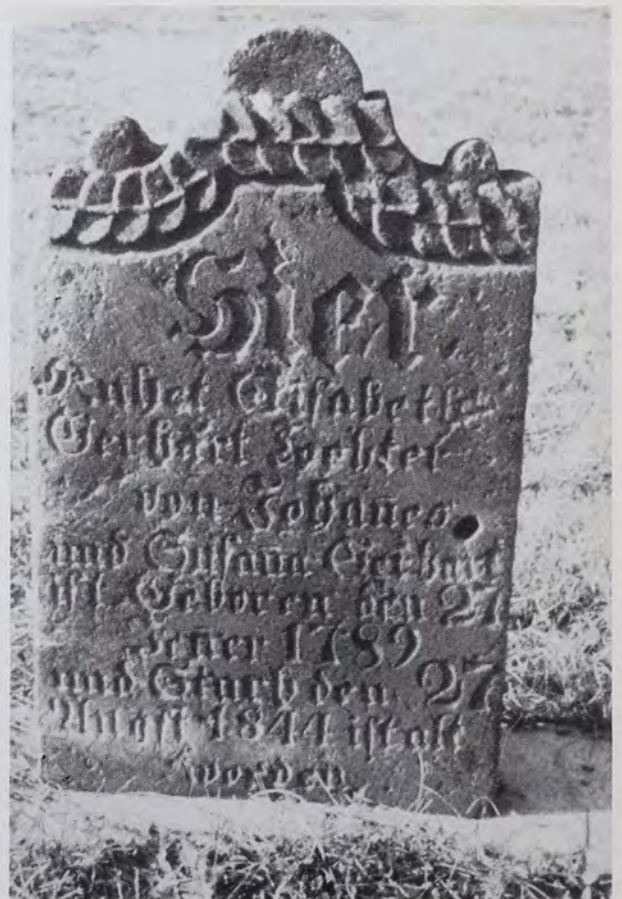 Hier
Ruhet Elisabeth
Gerhart Tochter
von Johañes
und Susaña Gerhart
ist Geboren den 27
Jener 1789
und Sturb den 27
Augst 1844 ist alt
worden